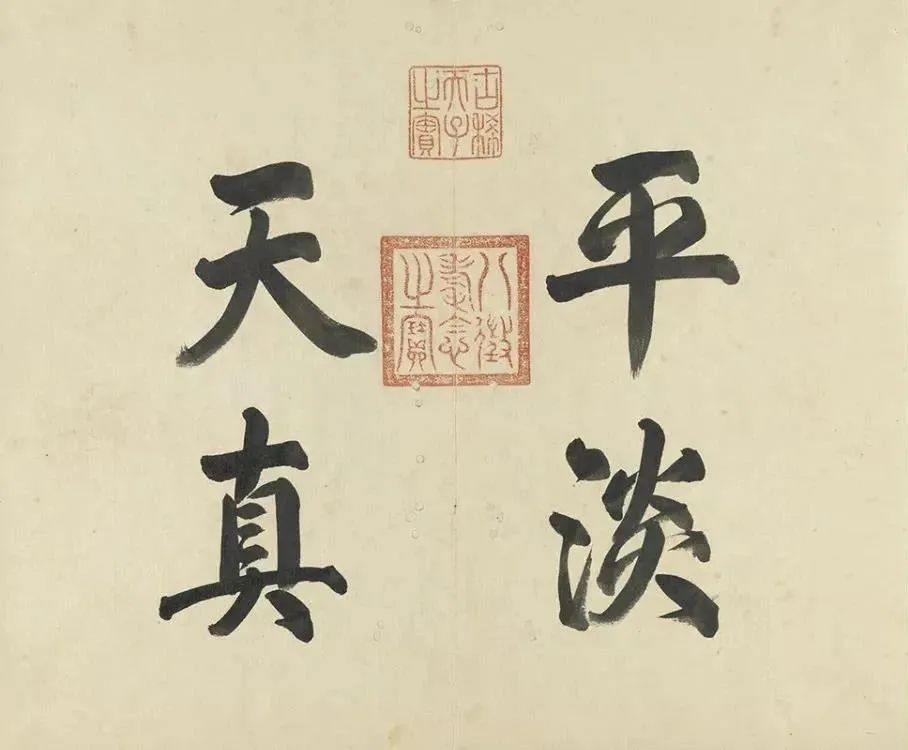 平淡
天真
古稀天子之寶
八徵耄念之寶